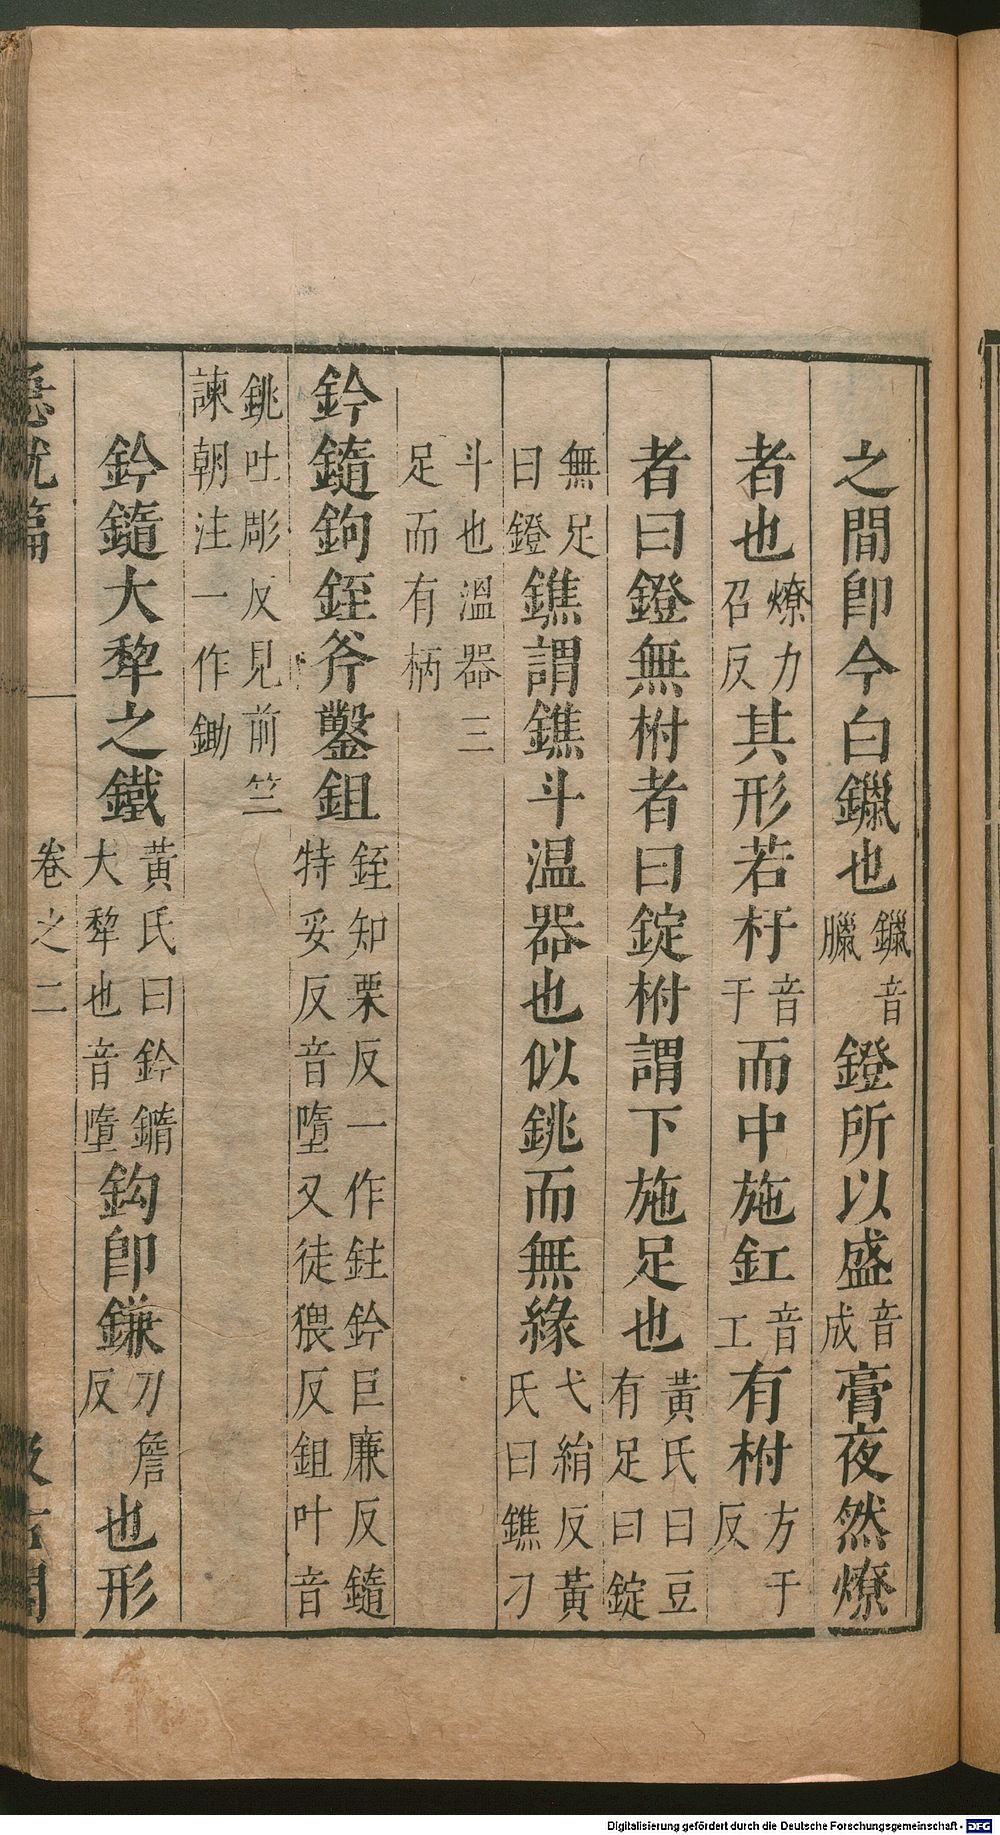 之間卽今白鑞也鑞音臘鐙所以盛音成膏夜然燎
者也燎力召反其形若杅音于而中施釭音工有柎方于反
者曰鐙無柎者曰錠柎謂下施足也黃氏曰豆有足曰錠
無足曰鐙鐎謂鐎斗温器也似銚而無緣弋絹反黃氏曰鐎刁
斗也溫器三足而有柄
鈐䥙鉤銍斧鑿鉏銍知栗反一作鉒鈐巨廉反䥙特妥反音墮又徒猥反鉏叶音
銚吐彫反見前竺諫朝注一作鋤
鈐䥙大犂之鐵黃氏曰鈐鐫大犂也音墮鈎卽鎌刀詹反也形
急就篇 卷之二 汲古閣
Digitalisierung gefördert durch die Deutsche Forschungsgemeinschaft - DFG